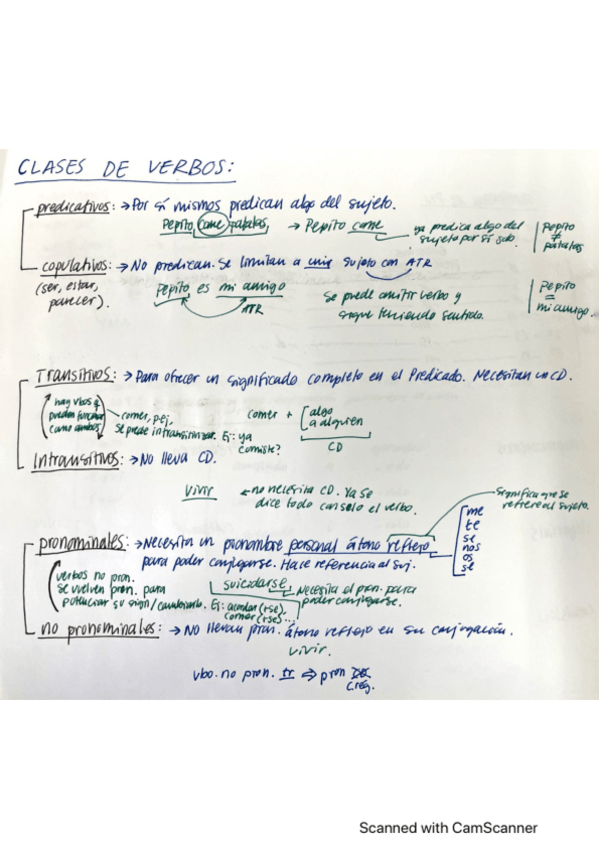 CLASES DE VERBOS:
predicativos: → Por sí mismos predican algo del sujeto.
Pepito come patatas → Pepito come
ya predica algo del
sujeto por sí solo.
Pepito
≠
patatas
copulativos: → No predican. Se limitan a unir sujeto con ATR
(ser, estar,
parecer).
Pepito es mi amigo
ATR
Se puede omitir verbo y
sigue teniendo sentido.
Pepito
=
mi amigo.
Transitivos: → Para ofrecer un significado completo en el Predicado. Necesitan un CD.
hay vbos q
pueden funcionar
como ambos
comer, p.ej,
se puede intransitivizar. Ej: ya
comiste?
comer + algo
a alguien
CD
Intransitivos: → No lleva CD.
vivir ← no necesita CD. Ya se
dice todo con solo el verbo.
Significa que se
refiere al sujeto.
pronominales: → Necesita un pronombre personal átono reflexo
para poder conjugarse. Hace referencia al suj.
me
te
se
nos
os
se
verbos no pron.
se vuelven pron. para
potenciar su sign/cambiarlo. Ej: acordar(rse),
comer(rse)...
suicidarse → Necesita el pron. para
poder conjugarse.
no pronominales: → No llevan pron. átono reflexo en su conjugación.
vivir.
vbo. no pron. tr ⇒ pron
C.rég.
Scanned with CamScanner